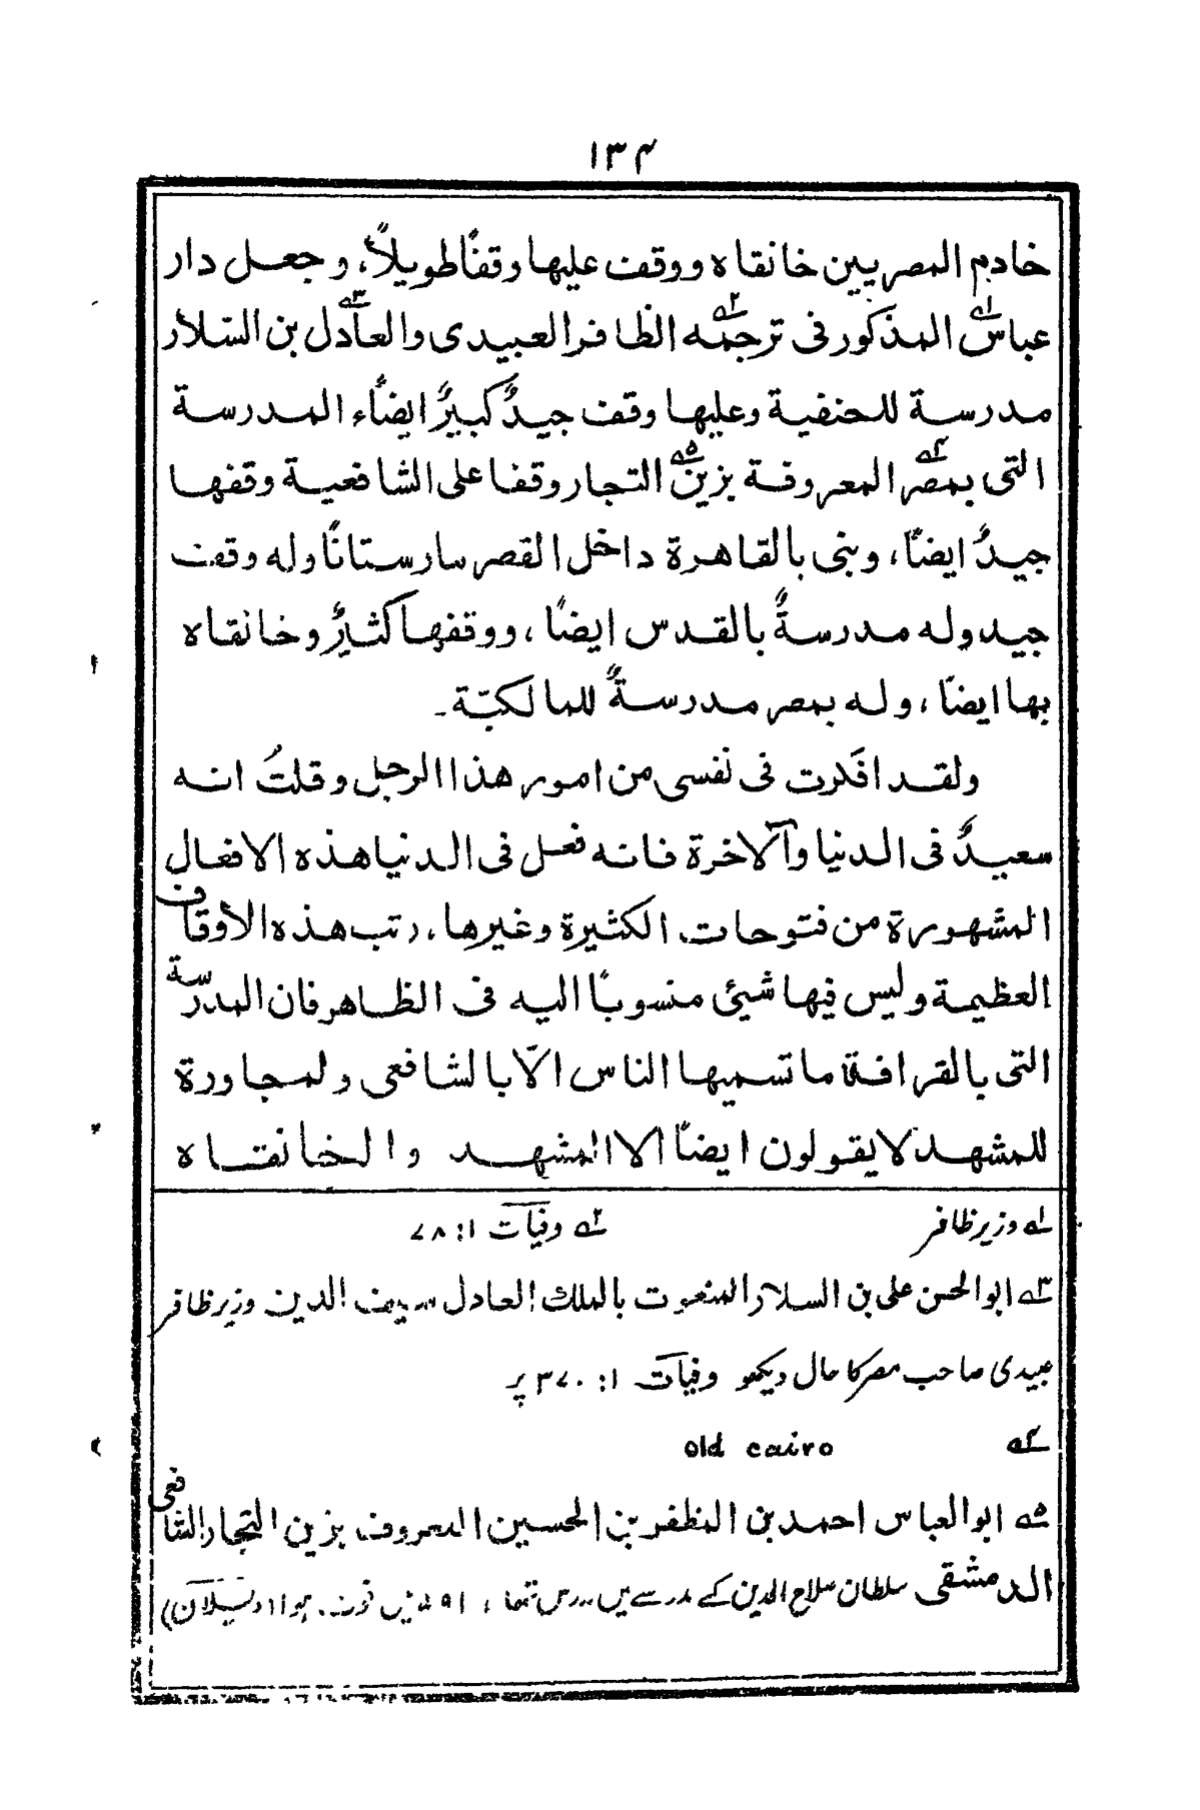 ۱۳۴
خادم المصريين خانقاه ووقف عليها وقفًا طويلاً، وجعل دار
عباس۱ے المذكور فى ترجمة۲ے الظافر العبيدى والعادل۳ے بن السّلار
مدرسة للحنفية وعليها وقف جيدٌ كبيرٌ ايضًاء المدرسة
التى بمصر۴ے المعروفة بزين۵ے التجار وقفا على الشافعية وقفها
جيدٌ ايضًا، وبنى بالقاهرة داخل القصر مارستانًا وله وقف
جيد وله مدرسةٌ بالقدس ايضًا، ووقفها كثيرٌ وخانقاه
بها ايضًا، وله بمصر مدرسةٌ للمالكيّة۔
ولقد افكرت فى نفسى من امور هذا الرجل وقلتُ انه
سعيدٌ فى الدنيا والآخرة فانه فعل فى الدنيا هذه الافعال
المشهورة من فتوحات الكثيرة وغيرها، رتب هذه الأوقاف
العظيمة وليس فيها شيئ منسوبًا اليه فى الظاهر فان المدرسة
التى بالقرافة ما تسميها الناس الّا بالشافعى ولمجاورة
للمشهد لا يقولون ايضًا الا المشهد والخانقاه
۱ے وزیر ظافر ۲ے وفیات ۱: ۷۸
۳ے ابو الحسن علی بن السلار المنعوت بالملك العادل سیف الدین وزیر ظافر
عبیدی صاحب مصر کا حال دیکھو وفیات ۱: ۳۷۰ پر
۴ے old cairo
۵ے ابو العباس احمد بن المظفر بن الحسین المعروف بزین التجار الشافعی
الدمشقی سلطان صلاح الدین کے مدرسے میں مدرس تھا، ۵۹۱ میں فوت ہوا (دیسلان)